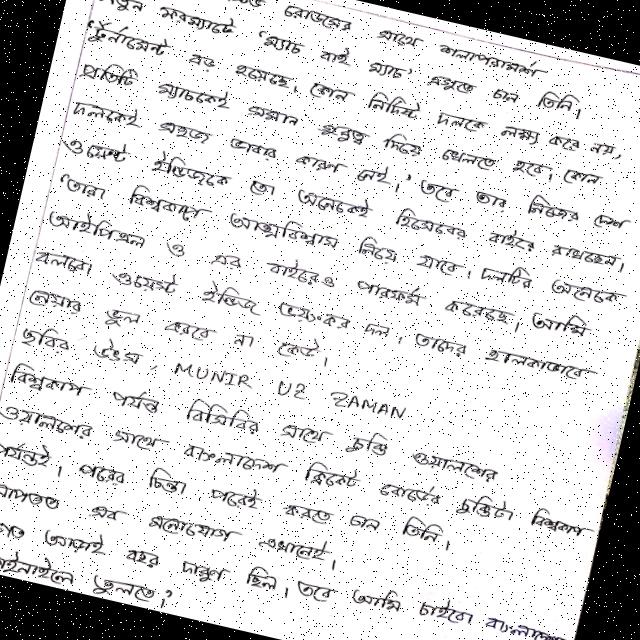 রোডসের সাথে শলাপরামর্শ
নতুন সংস্যাটে 'ম্যাচ বাই ম্যাচ' এগুতে চান তিনি।
টুর্নামেন্ট বড় হয়েছে। কোন নির্দিষ্ট দলকে লক্ষ্য করে নয়,
প্রতিটি ম্যাচকেই সমান গুরুত্ব দিয়ে খেলতে হবে। কোন
দলকেই সহজ ভাবার কারণ নেই।' তবে তার নিজের দেশ
ওয়েস্ট ইন্ডিজকে তো অনেকেই হিসেবের বাইরে রাখছেন।
'তারা বিশ্বকাপে আত্মবিশ্বাস নিয়ে যাবে। দলটির অনেকে
আইপিএল ও এর বাইরেও পারফর্ম করেছে। আমি
বলবো ওয়েস্ট ইন্ডিজ ভয়ংকর দল। তাদের হালকাভাবে
নেয়ার ভুল করবে না কেউ।
ছবির উৎস, MUNIR UZ ZAMAN
বিশ্বকাপ পর্যন্ত বিসিবির সাথে চুক্তি ওয়ালশের
ওয়ালশের সাথে বাংলাদেশ ক্রিকেট বোর্ডের চুক্তিটা বিশ্বকাপ
পর্যন্তই। পরের চিন্তা পরেই করতে চান তিনি।
আপাতত সব মনোযোগ এখানেই।
গত আড়াই বছর দারুণ ছিল। তবে আমি চাইবো বাংলাদেশ
ভুলতে।'